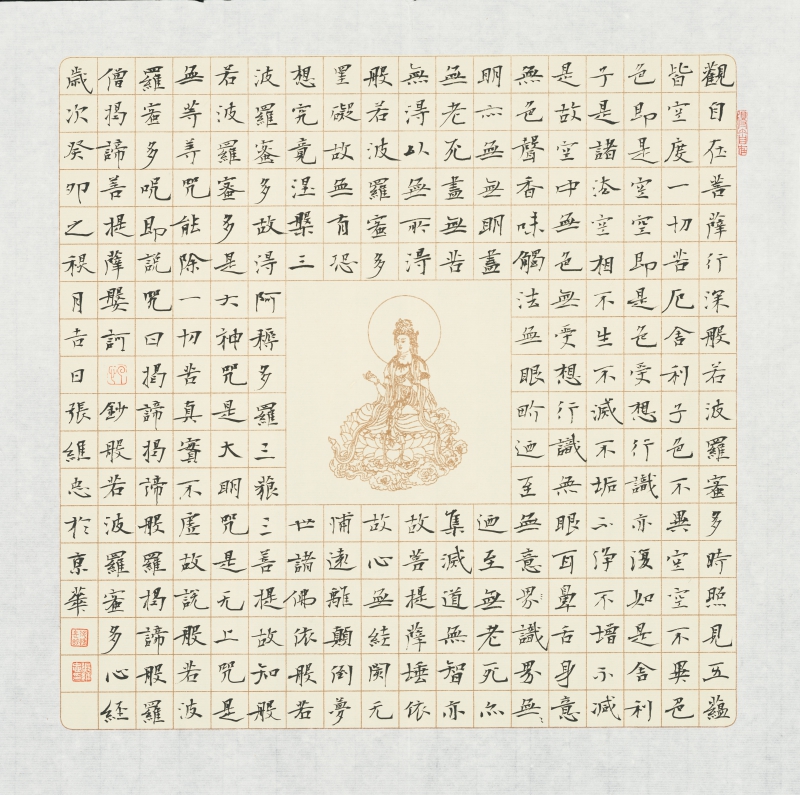 觀自在菩薩行深般若波羅蜜多時照見五蘊
皆空度一切苦厄舍利子色不異空空不異色
色即是空空即是色受想行識亦復如是舍利
子是諸法空相不生不滅不垢不淨不增不減
是故空中無色無受想行識無眼耳鼻舌身意
無色聲香味觸法無眼界迺至無意界識界無
明亦無無明盡迺至無老死亦
無老死盡無苦集滅道無智亦
無得以無所得故菩提薩埵依
般若波羅蜜多故心無絓閡无
罣礙故無有恐怖遠離顛倒夢
想究竟涅槃三世諸佛依般若
波羅蜜多故得阿耨多羅三藐三菩提故知般
若波羅蜜多是大神咒是大明咒是无上咒是
無等等咒能除一切苦真實不虛故說般若波
羅蜜多咒即說咒曰揭諦揭諦般羅揭諦般羅
僧揭諦菩提薩婆訶鈔般若波羅蜜多心經
歲次癸卯之禊月吉日張維忠於京華